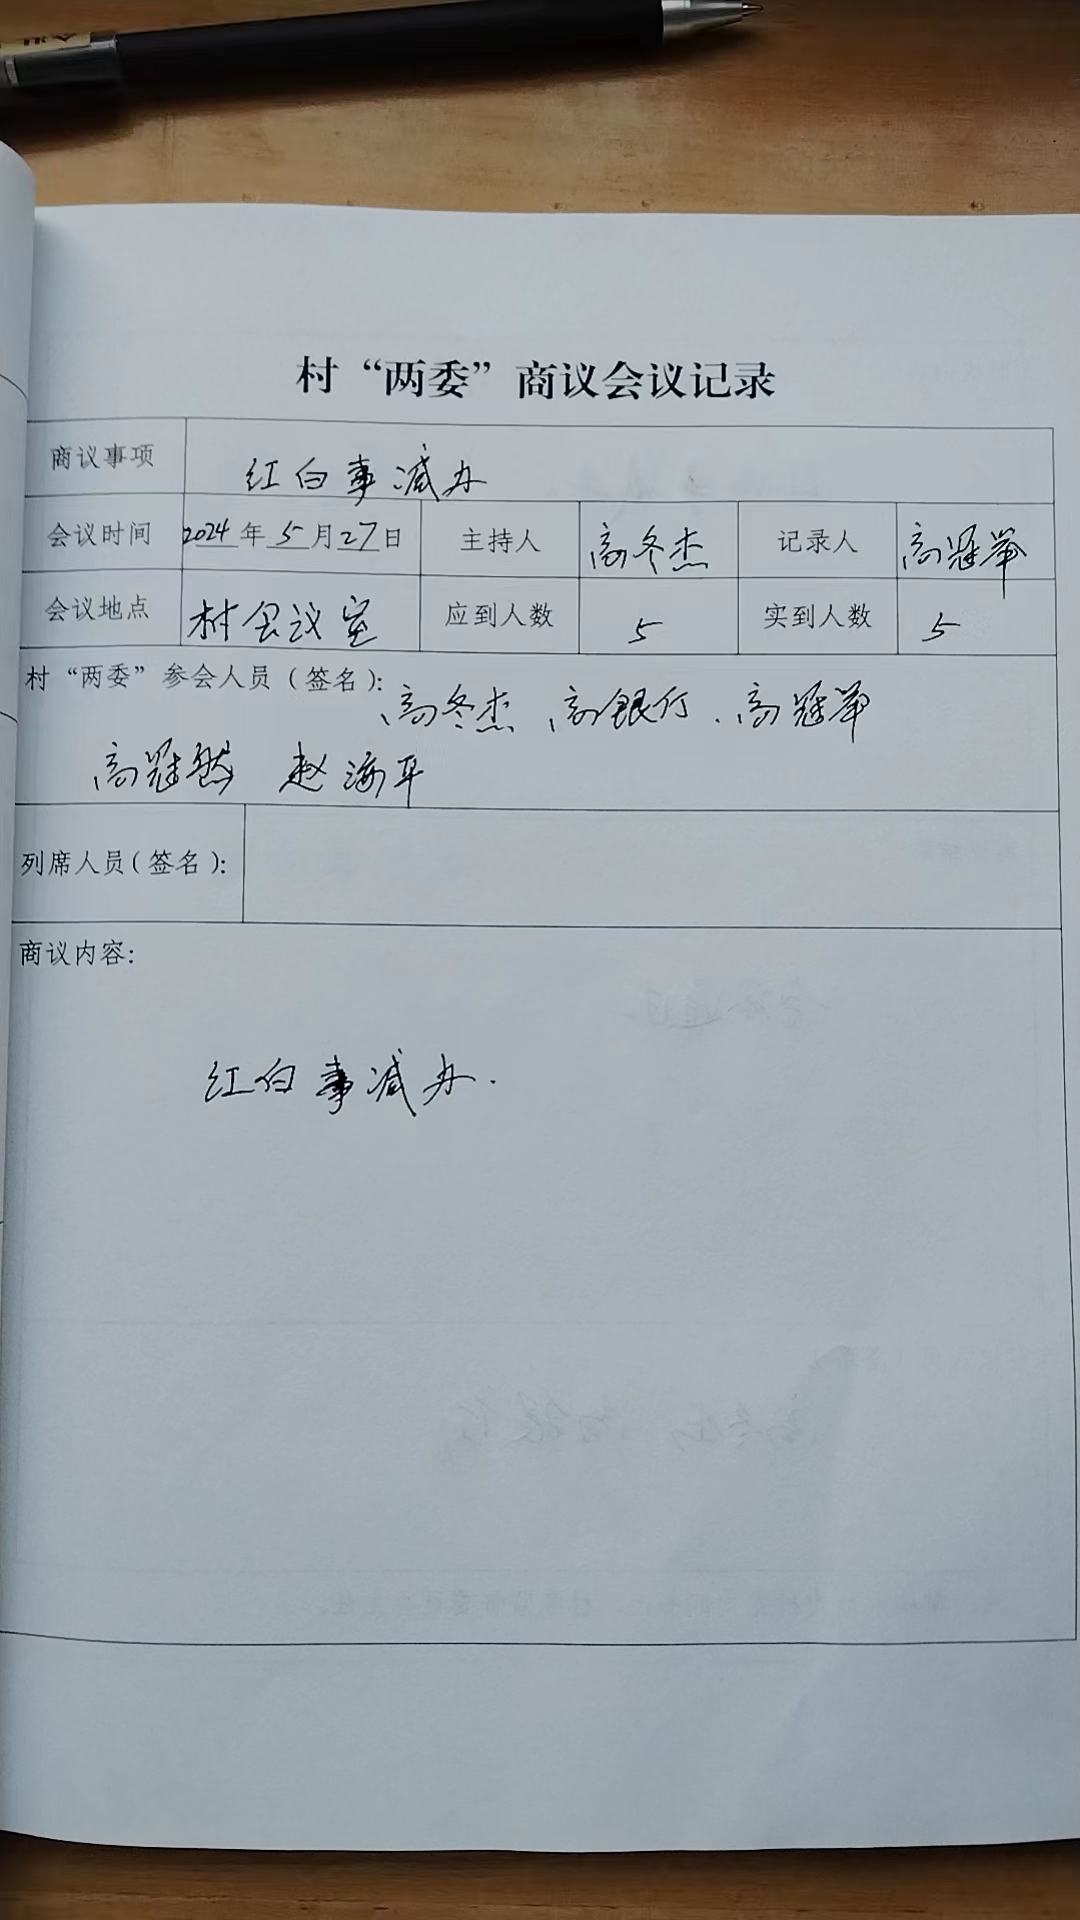 村“两委”商议会议记录
商议事项 红白事减办
会议时间 2024年5月27日 主持人 高冬杰 记录人 高冠举
会议地点 村会议室 应到人数 5 实到人数 5
村“两委”参会人员(签名): 高冬杰 高银行、高冠举
高冠然 赵海平
列席人员(签名):
商议内容:
红白事减办.